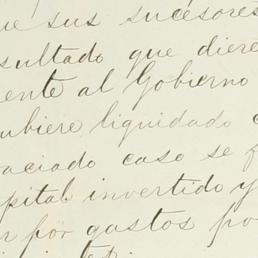 ue sus sucesores
sultado que diere
ente al Gobierno
ubiere liquidado c
aciado caso se f
pital invertido y
r por gastos po